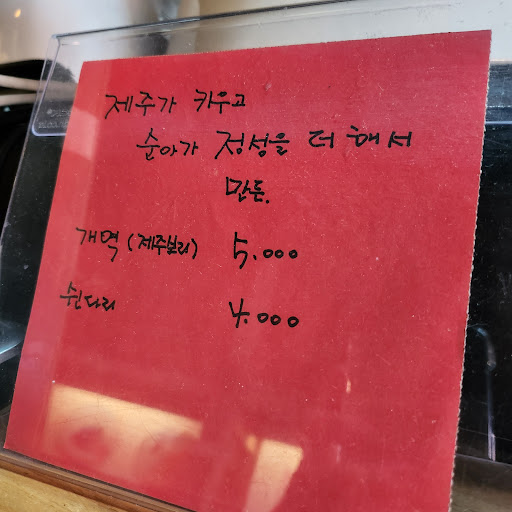 제주가 키우고
순아가 정성을 더해서
만든.
개역 (제주보리) 5.000
쉰다리 4.000